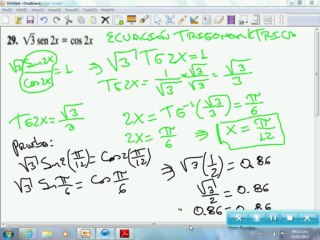 29. √3 sen 2x = cos 2x
ECUACIÓN TRIGONOMÉTRICA
√3 Sen2x/Cos2x = 1 ⇒ √3 TG2X = 1
TG2X = 1/√3 · √3/√3 = √3/3
TG2X = √3/3
2X = TG⁻¹(√3/3) = π/6
2X = π/6 ⇒ X = π/12
Prueba:
√3 Sen2(π/12) = Cos2(π/12) ⇒ √3(1/2) = 0.86
√3 Sen π/6 = Cos π/6
√3/2 = 0.86
0.86 = 0.86